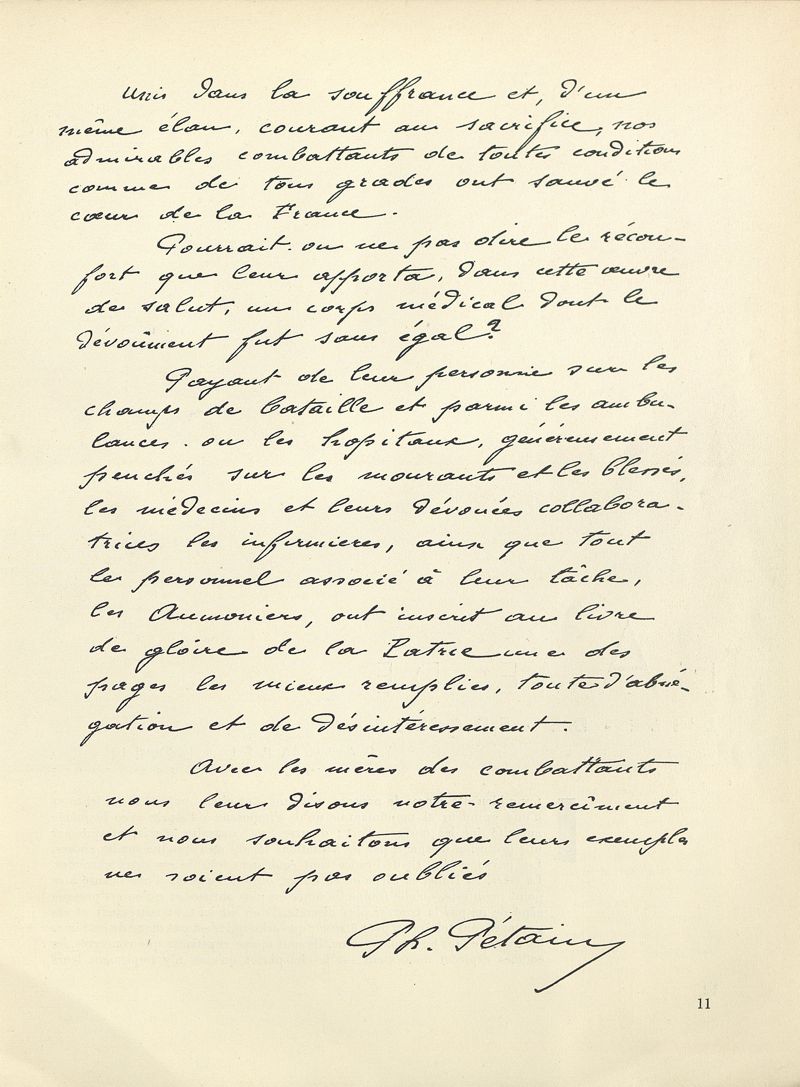 Unis dans la souffrance et, d'un
même élan, courant au sacrifice, nos
admirables combattants de toutes conditions
comme de tous grades ont sauvé le
cœur de la France.
Pourrait-on ne pas dire le récon-
fort que leur apporta, dans cette œuvre
de salut, un corps médical dont le
dévoûment fut sans égal?
Payant de leur personne sur les
champs de bataille et parmi les ambu-
lances ou les hopitaux, généreusement
penchés sur les mourants et les blessés,
les médecins et leurs dévouées collabora-
trices les infirmieres, ainsi que tout
le personnel associé à leur tâche,
les Aumoniers, ont inscrit au livre
de gloire de la Patrie une des
pages les mieux remplies, toute d'abné-
gation et de désintéressement.
Avec les mères des combattants
nous leur disons notre remerciment
et nous souhaitons que leurs exemples
ne soient pas oubliés
Ph. Pétain
11